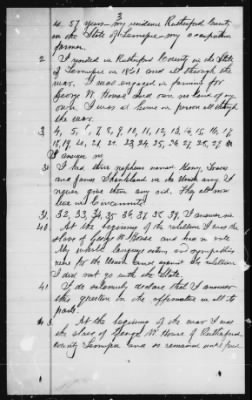 3
is 57 years - my residence Rutherford County
in the State of Tennessee - my occupation
farmer.
2 I resided in Rutherford County in the State
of Tennessee in 1861 and all through the
war. I was engaged in farming for
George W. House and own no land of my
own. I was at home in person all through
the war.
3 4, 5, 6, 7, 8, 9, 10, 11, 12, 13, 14, 15, 16, 17
18, 19, 20, 21, 22, 23, 24, 25, 26, 27, 28, 29
I answer no
31 I had three nephews named Henry,
and James in the Union army I
never give them any aid. They all now
live in Cincinnatti
31. 32, 33, 34, 35, 36, 37, 38, 39, I answer no
40 At the beginning of the rebellion I was the
slave of George W House and has no vote
My whole language action and sympathies
were for the Union and against the rebellion
I did not go with the State.
41 I do solemnly declare that I answer
this question in the affirmative in all its
parts.
43 At the beginning of the war I was
the slave of George W House of Rutherford
County Tennessee and so remained until freed